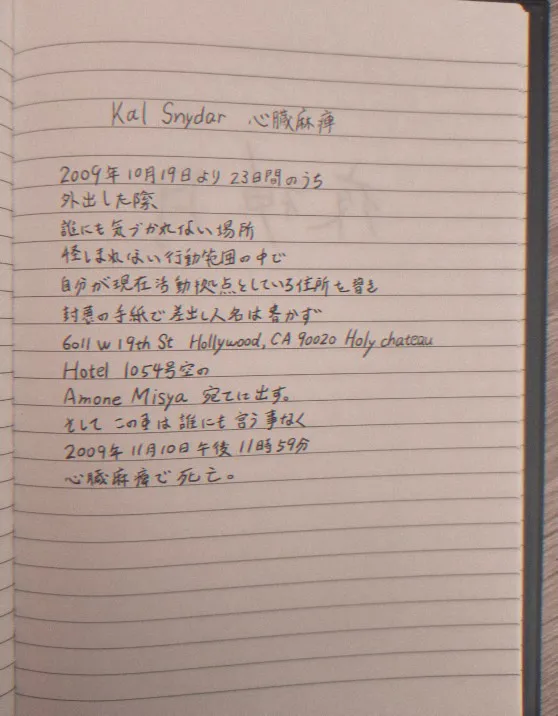 Kal Snydar 心臓麻痺
2009年10月19日より 23日間のうち
外出した際
誰にも気づかれない場所
怪しまれない行動範囲の中で
自分が現在活動拠点としている住所を書き
封書の手紙で差出し人名は書かず
6011 W 19th St Hollywood, CA 90020 Holy chateau
Hotel 1054号室の
Amone Misya 宛てに出す。
そして この事は誰にも言う事なく
2009年11月10日午後11時59分
心臓麻痺で死亡。